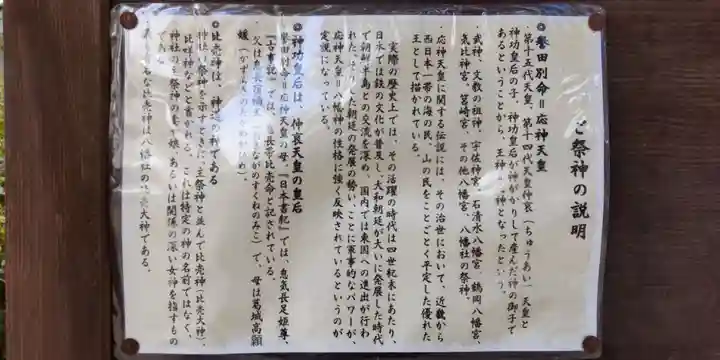 ご祭神の説明
◎誉田別命＝応神天皇
・第十五代天皇。第十四代天皇仲哀（ちゅうあい）天皇と
神功皇后の子。神功皇后が神がかりして産んだ神の御子で
あるということから、王神＝神となったという。
・武神、文教の祖神、宇佐神宮、石清水八幡宮、鶴岡八幡宮、
気比神宮、筥崎宮、その他八幡宮、八幡社の祭神。
・応神天皇に関する伝説には、その治世において、近畿から
西日本一帯の海の民、山の民をことごとく平定した優れた
王として描かれている。
・実際の歴史上では、その活躍の時代は四世紀末にあたり、
日本では鉄の文化が普及し、大和朝廷が大いに発展した時代
で朝鮮半島との交流を深め、国内では東国への進出が行わ
れた。そうした朝廷の発展の勢い、ことに軍事的なパワーが
応神天皇＝八幡神の性格に強く反映されているというのが
定説になっている。
◎神功皇后は、仲哀天皇の皇后
・誉田別命＝応神天皇の母。『日本書紀』では、息気長足姫尊、
『古事記』では、息長帯比売命と記されている。
・父は息長宿禰王（おきながのすくねのみこ）で、母は葛城高顙
媛（かずらきのたかぬかひめ）。
◎比売神は、神道の神である
・神社の祭神を示すときに、主祭神と並んで比売神（比売大神）、
比咩神などと書かれる。これは特定の神の名前ではなく、
神社の主祭神の妻や娘、あるいは関係の深い女神を指すもの
である。
・最も有名な比売神は八幡社の比売大神である。